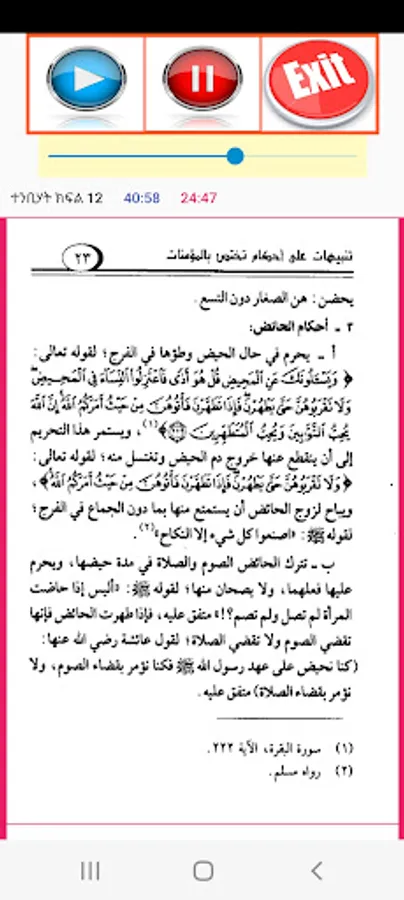 Exit
ተንቢሃት ክፍል 12 40:58 24:47
تنبيهات على أحكام تختص بالمؤمنات ٢٣
يحضن: هن الصغار دون التسع.
٢ ـ أحكام الحائض:
أ ـ يحرم في حال الحيض وطؤها في الفرج؛ لقوله تعالى:
﴿ وَيَسْـَٔلُونَكَ عَنِ الْمَحِيضِ قُلْ هُوَ أَذًى فَاعْتَزِلُوا النِّسَاءَ فِي الْمَحِيضِ
وَلَا تَقْرَبُوهُنَّ حَتَّىٰ يَطْهُرْنَ فَإِذَا تَطَهَّرْنَ فَأْتُوهُنَّ مِنْ حَيْثُ أَمَرَكُمُ اللَّهُ إِنَّ اللَّهَ
يُحِبُّ التَّوَّابِينَ وَيُحِبُّ الْمُتَطَهِّرِينَ ﴾(١)، ويستمر هذا التحريم
إلى أن ينقطع عنها خروج دم الحيض وتغتسل منه؛ لقوله تعالى:
﴿ وَلَا تَقْرَبُوهُنَّ حَتَّىٰ يَطْهُرْنَ فَإِذَا تَطَهَّرْنَ فَأْتُوهُنَّ مِنْ حَيْثُ أَمَرَكُمُ اللَّهُ ﴾،
ويباح لزوج الحائض أن يستمتع منها بما دون الجماع في الفرج؛
لقوله ﷺ: «اصنعوا كل شيء إلا النكاح»(٢).
ب ـ تترك الحائض الصوم والصلاة في مدة حيضها، ويحرم
عليها فعلهما، ولا يصحان منها؛ لقوله ﷺ: «أليس إذا حاضت
المرأة لم تصل ولم تصم؟!» متفق عليه، فإذا طهرت الحائض فإنها
تقضي الصوم ولا تقضي الصلاة؛ لقول عائشة رضي الله عنها:
(كنا نحيض على عهد رسول الله ﷺ فكنا نؤمر بقضاء الصوم، ولا
نؤمر بقضاء الصلاة) متفق عليه.
(١) سورة البقرة، الآية ٢٢٢.
(٢) رواه مسلم.